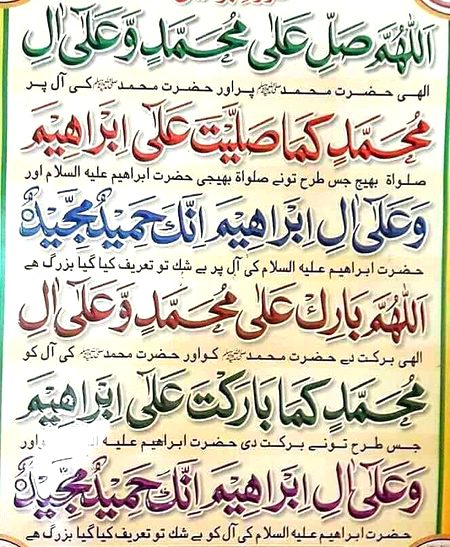 اَللّٰهُمَّ صَلِّ عَلٰى مُحَمَّدٍ وَّعَلٰى اٰلِ
الهی حضرت محمد ﷺ پر اور حضرت محمد ﷺ کی آل پر
مُحَمَّدٍ كَمَا صَلَّيْتَ عَلٰى اِبْرَاهِيْمَ
صلواة بھیج جس طرح تونے صلواة بھیجی حضرت ابراهیم علیه السلام اور
وَعَلٰى اٰلِ اِبْرَاهِيْمَ اِنَّكَ حَمِيْدٌ مَّجِيْدٌ
حضرت ابراهیم علیه السلام کی آل پر بے شك تو تعریف کیا گیا بزرگ هے
اَللّٰهُمَّ بَارِكْ عَلٰى مُحَمَّدٍ وَّعَلٰى اٰلِ
الهی برکت دے حضرت محمد ﷺ کو اور حضرت محمد ﷺ کی آل کو
مُحَمَّدٍ كَمَا بَارَكْتَ عَلٰى اِبْرَاهِيْمَ
جس طرح تونے برکت دی حضرت ابراهیم علیه اور
وَعَلٰى اٰلِ اِبْرَاهِيْمَ اِنَّكَ حَمِيْدٌ مَّجِيْدٌ
حضرت ابراهیم علیه السلام کی آل کو بے شك تو تعریف کیا گیا بزرگ هے